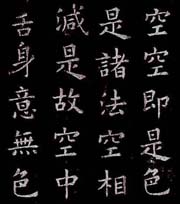 空空即是色
是諸法空相
減是故空中
舌身意無色